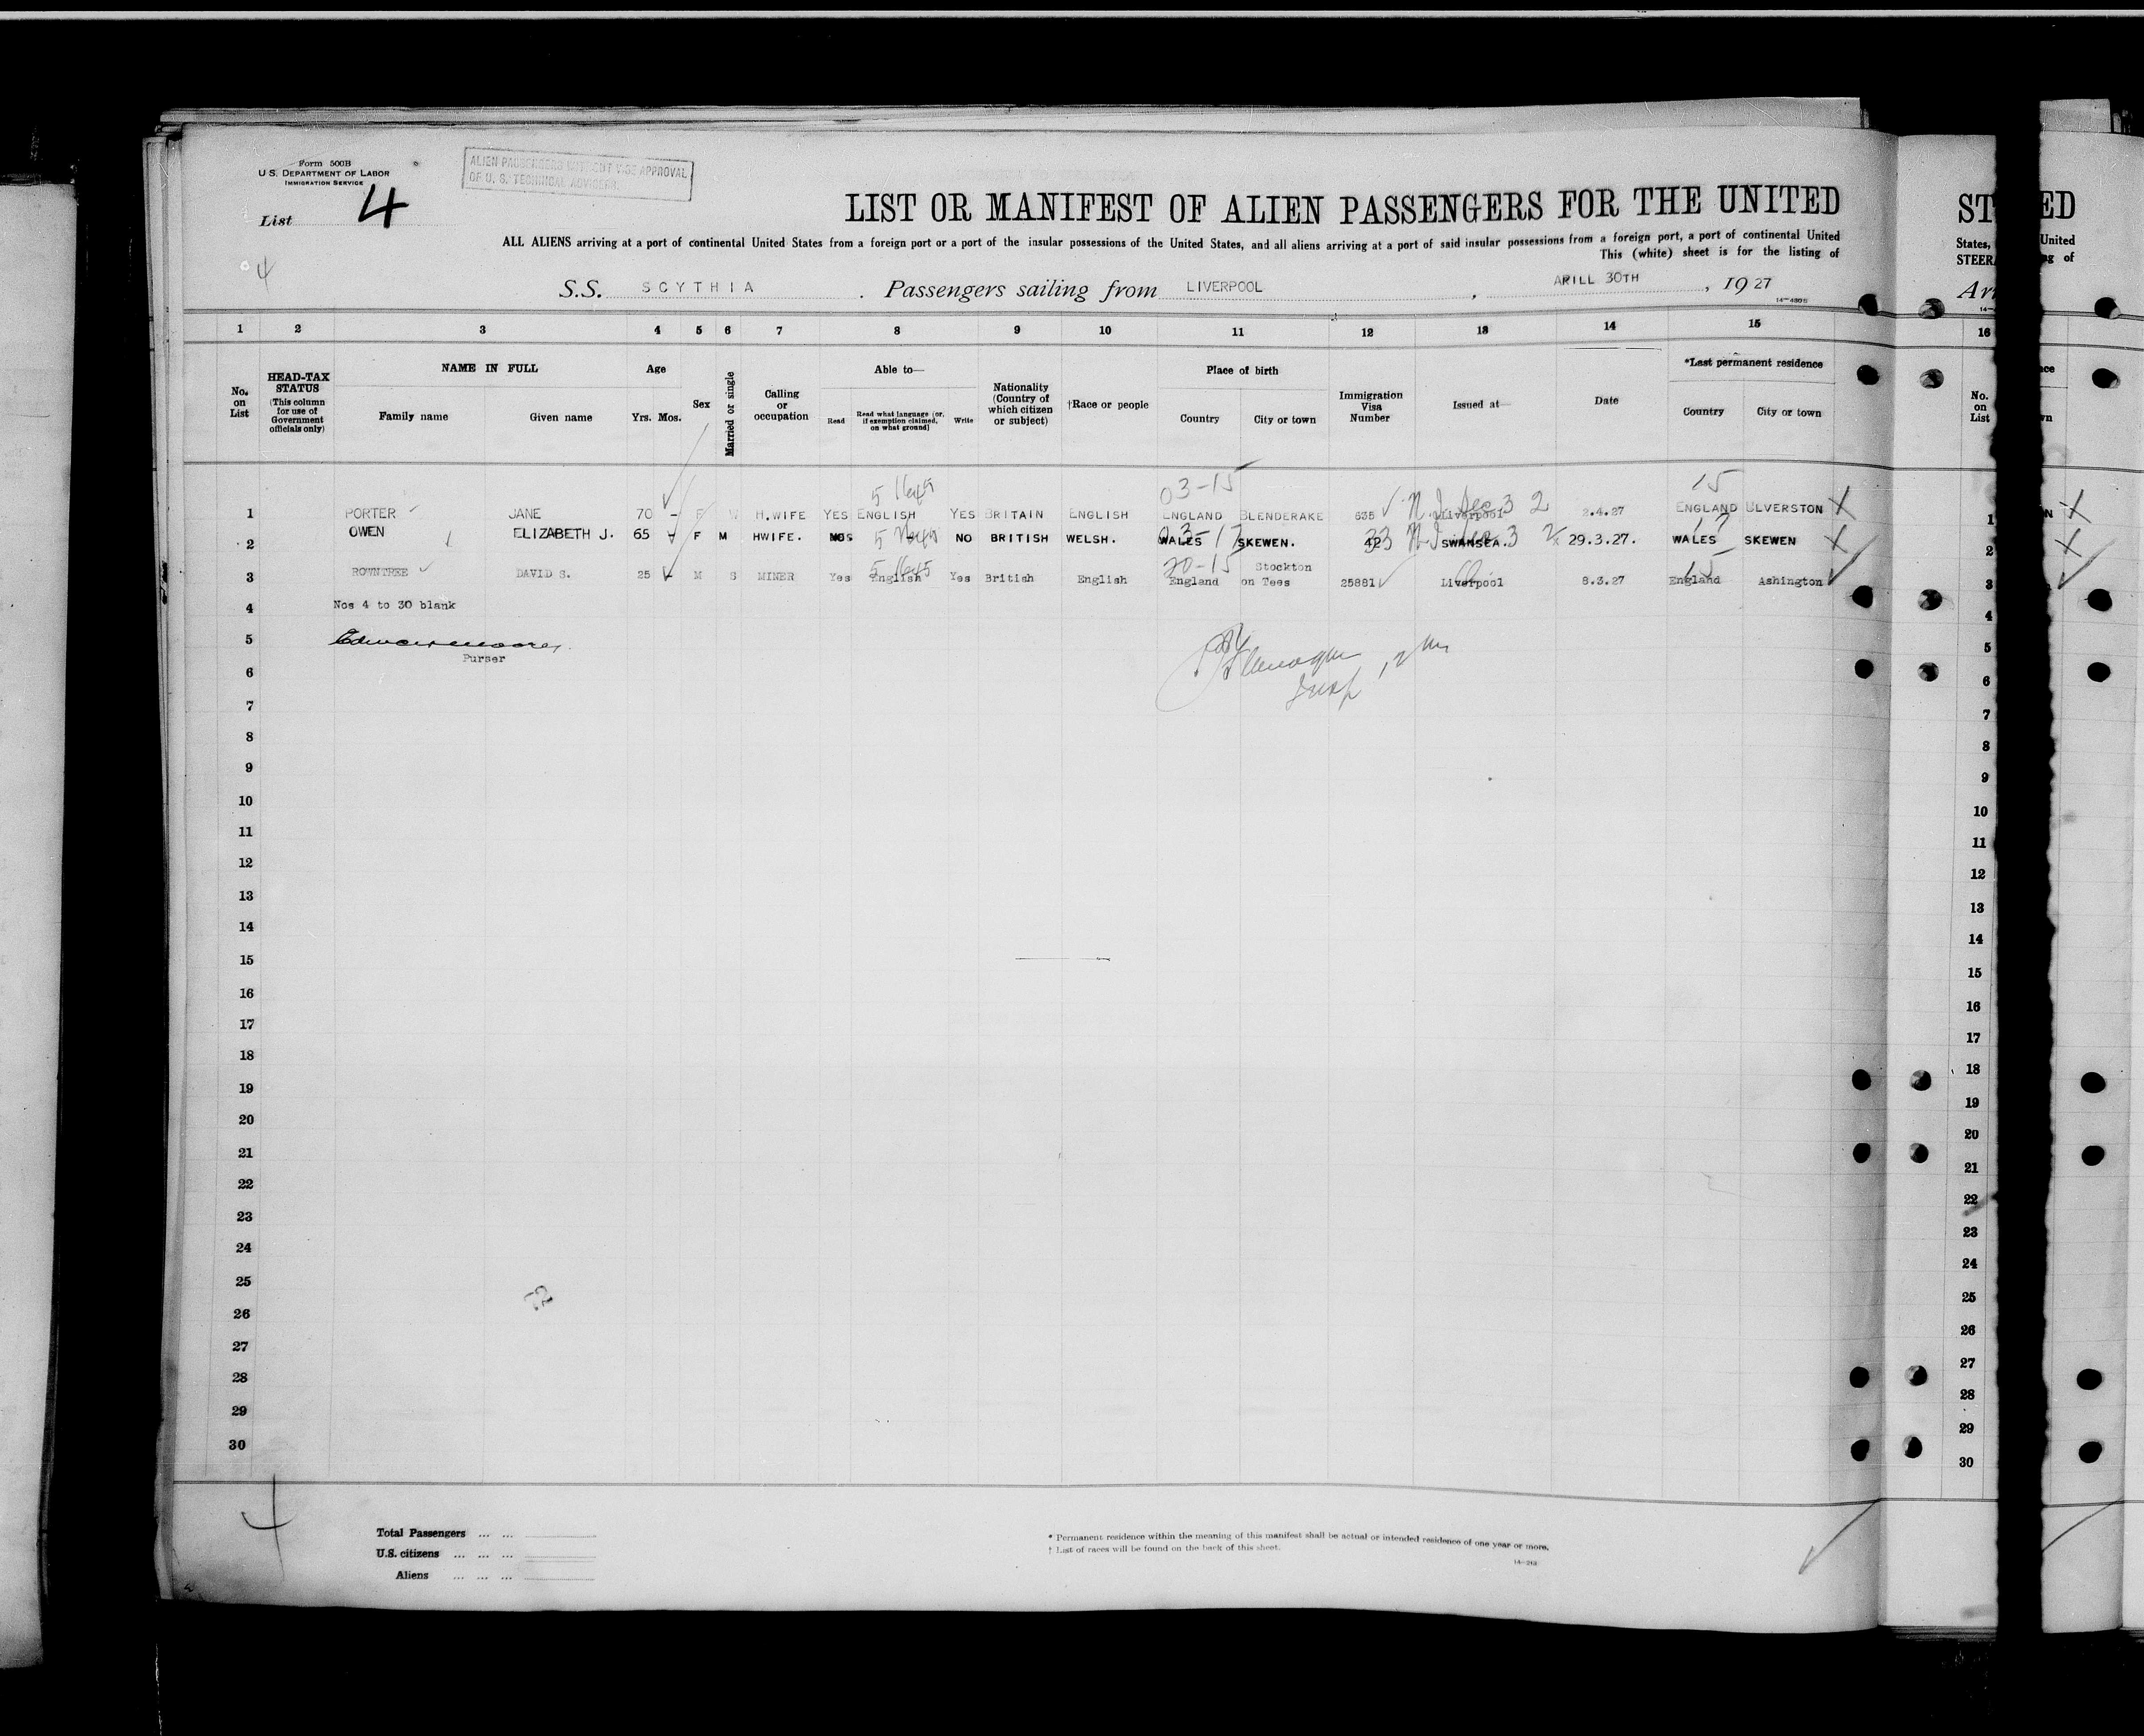 Form 500B
U.S. DEPARTMENT OF LABOR
IMMIGRATION SERVICE
ALIEN PASSENGERS WITHOUT VISE APPROVAL
OF U. S. TECHNICAL ADVISERS.
List 4
LIST OR MANIFEST OF ALIEN PASSENGERS FOR THE UNITED
ALL ALIENS arriving at a port of continental United States from a foreign port or a port of the insular possessions of the United States, and all aliens arriving at a port of said insular possessions from a foreign port, a port of continental United
This (white) sheet is for the listing of
4
S.S. SCYTHIA . Passengers sailing from LIVERPOOL , ARILL 30TH , 19 27
1 2 3 4 5 6 7 8 9 10 11 12 13 14 15
No. on List
HEAD-TAX STATUS (This column for use of Government officials only)
NAME IN FULL
Family name Given name
Age
Yrs. Mos.
Sex
Married or single
Calling or occupation
Able to—
Read Read what language (or, if exemption claimed, on what ground) Write
Nationality (Country of which citizen or subject)
†Race or people
Place of birth
Country City or town
Immigration Visa Number
Issued at—
Date
*Last permanent residence
Country City or town
03-15 15
1 PORTER JANE 70 - F W H.WIFE YES ENGLISH YES BRITAIN ENGLISH ENGLAND BLENDERAKE 635 Liverpool 2.4.27 ENGLAND ULVERSTON X
2 OWEN ELIZABETH J. 65 - F M HWIFE. NO NO BRITISH WELSH. WALES SKEWEN. SWANSEA. 29.3.27. WALES SKEWEN X
20-15 15
3 ROWNTREE DAVID S. 25 - M S MINER Yes English Yes British English England Stockton on Tees 25881 Liverpool 8.3.27 England Ashington
4 Nos 4 to 30 blank
5
Purser
6
7
8
9
10
11
12
13
14
15
16
17
18
19
20
21
22
23
24
25
26
27
28
29
30
Total Passengers ... ...
U.S. citizens ... ... ...
Aliens ... ... ...
* Permanent residence within the meaning of this manifest shall be actual or intended residence of one year or more.
† List of races will be found on the back of this sheet.
ST
States,
STEER
16
No. on List
1
2
3
4
5
6
7
8
9
10
11
12
13
14
15
16
17
18
19
20
21
22
23
24
25
26
27
28
29
30
ED
United
ng of